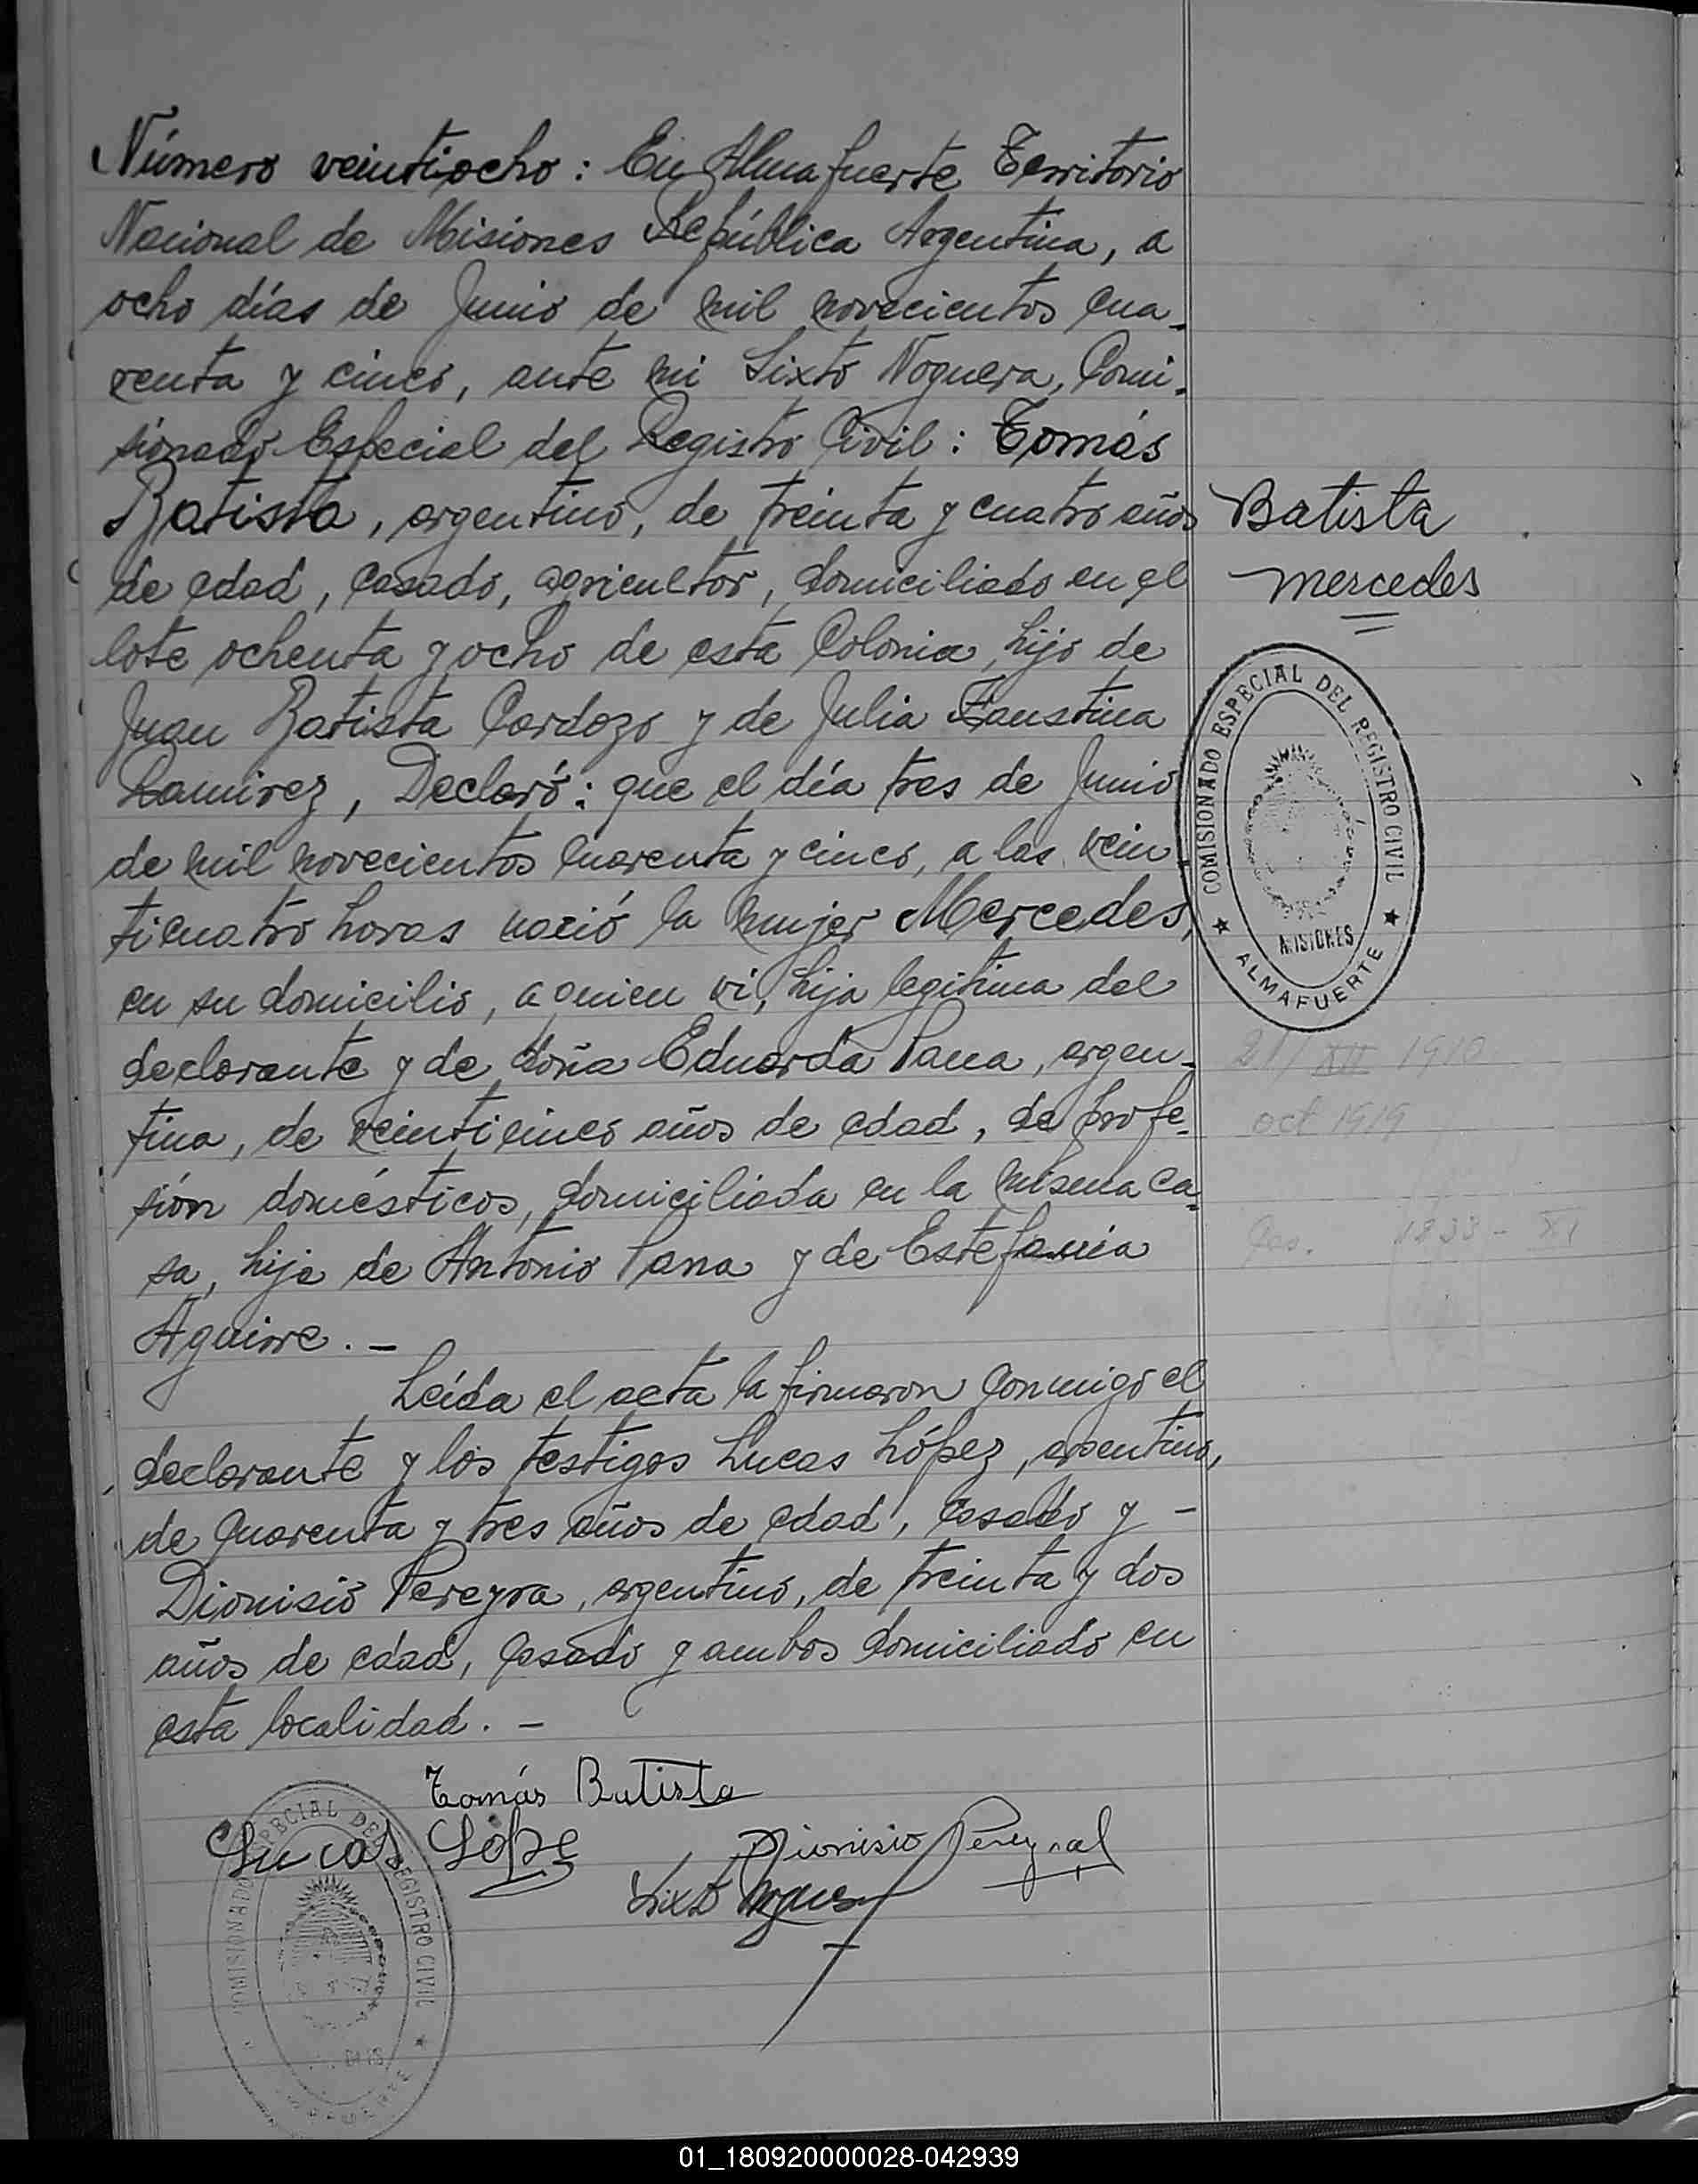 Número veintiocho: En Almafuerte Territorio
Nacional de Misiones República Argentina, a
ocho días de Junio de mil novecientos cua-
renta y cinco, ante mi Sixto Noguera, Comi-
sionado Especial del Registro Civil: Tomás
Batista, argentino, de treinta y cuatro años
de edad, casado, agricultor, domiciliado en el
lote ochenta y ocho de esta Colonia, hijo de
Juan Batista Cardozo y de Julia Faustina
Ramirez, Declaró: que el día tres de Junio
de mil novecientos cuarenta y cinco, a las vein-
ticuatro horas nació la mujer Mercedes,
en su domicilio, a quien vi, hija legitima del
declarante y de doña Eduarda Pana, argen-
tina, de veinticinco años de edad, de profe-
sión domésticos, domiciliada en la misma ca-
sa, hija de Antonio Pana y de Estefania
Aguirre. -
Leída el acta la firmaron conmigo el
declarante y los testigos Lucas López, argentino,
de cuarenta y tres años de edad, casado y -
Dionisio Pereyra, argentino, de treinta y dos
años de edad, casado y ambos domiciliado en
esta localidad. -
Tomás Batista
Lucas Lope
Dionisio Pereyra
Sixto Noguera
Batista
Mercedes
COMISIONADO ESPECIAL DEL REGISTRO CIVIL
MISIONES
★ ALMAFUERTE ★
21/ XII 1910
oct 1919
1933 - XI
COMISIONADO ESPECIAL DEL REGISTRO CIVIL
01_180920000028-042939